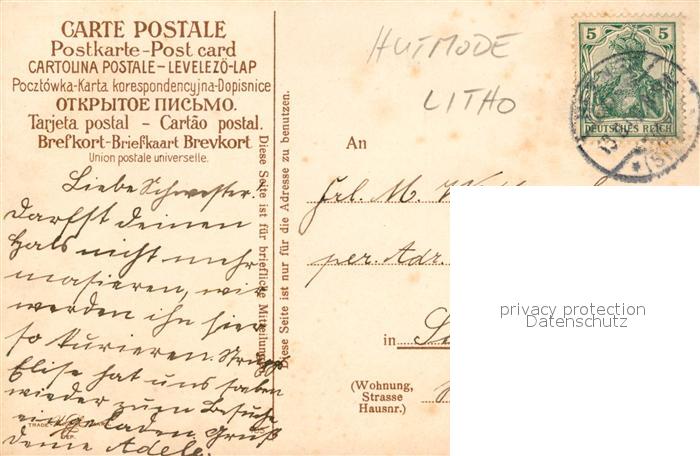 CARTE POSTALE
Postkarte-Post card
CARTOLINA POSTALE-LEVELEZŐ-LAP
Pocztówka-Karta korespondencyjna-Dopisnice
ОТКРЫТОЕ ПИСЬМО.
Tarjeta postal - Cartão postal.
Brefkort-Briefkaart Brevkort
Union postale universelle.
HUTMODE
LITHO
5 5
DEUTSCHES REICH
Diese Seite ist für briefliche Mitteilungen
Diese Seite ist nur für die Adresse zu benutzen.
Liebe Schwester.
Darfst deinen
Hals nicht mehr
masieren, wir
werden ihn hier
so kurieren.
Elise hat uns soeben
wieder zum Besuche
eingeladen. Gruß
deine Adele.
TRADE
DEP.
An
Frl. M.
per. Adr.
in
(Wohnung,
Strasse
Hausnr.)
privacy protection
Datenschutz